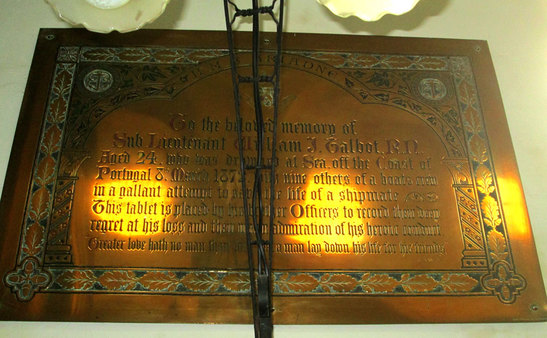 H.M.S. ARIADNE
To the beloved memory of
Sub Lieutenant William J. Talbot, R.N.
Aged 24, who was drowned at Sea, off the Coast of
Portugal 8 March 187 nine others of a boats crew
in a gallant attempt to save the life of a shipmate
This tablet is placed by his brother Officers to record their deep
regret at his loss and their admiration of his heroic conduct.
Greater love hath no man than a man lay down his life for his friends